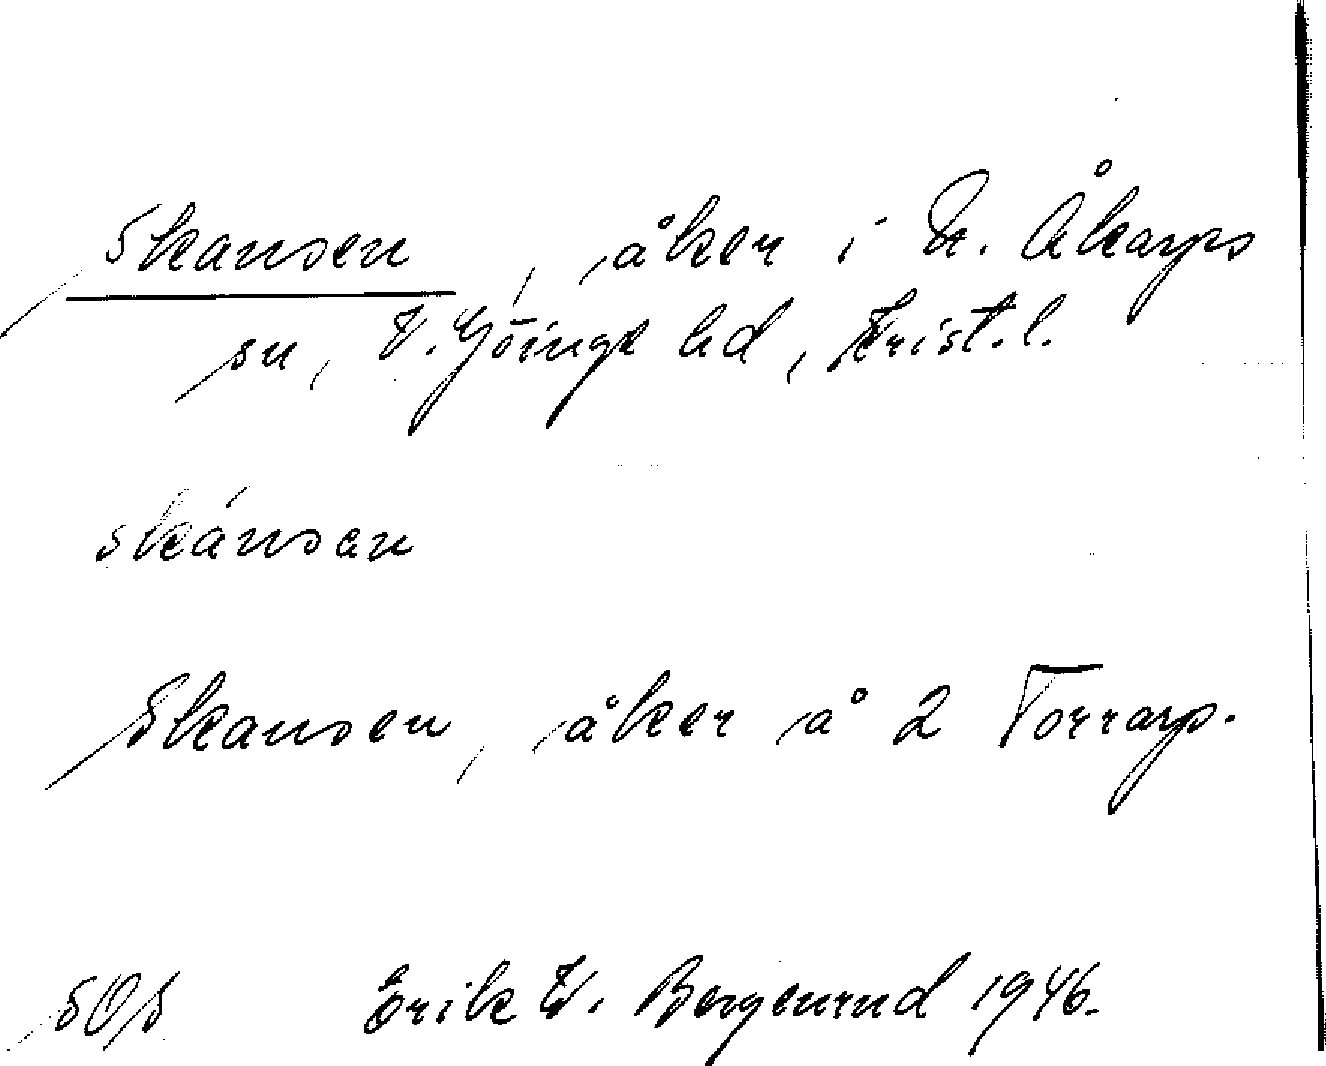 Skansen, åker i N. Åkarps
sn, V. Göinge hd, Krist. l.
skánsan
Skansen, åker å 2 Torrarp.
Erik W. Bergenrud 1946.